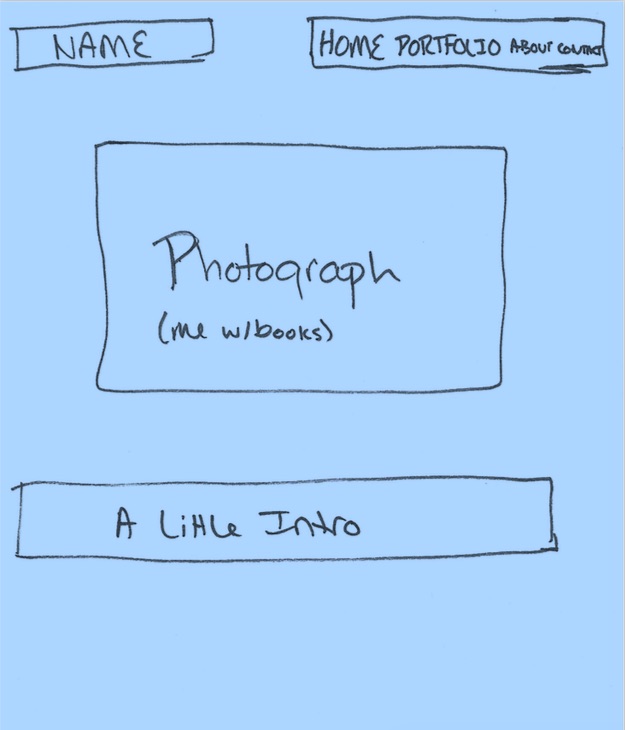 NAME
HOME PORTFOLIO ABOUT CONTACT
Photograph
(me w/books)
A Little Intro